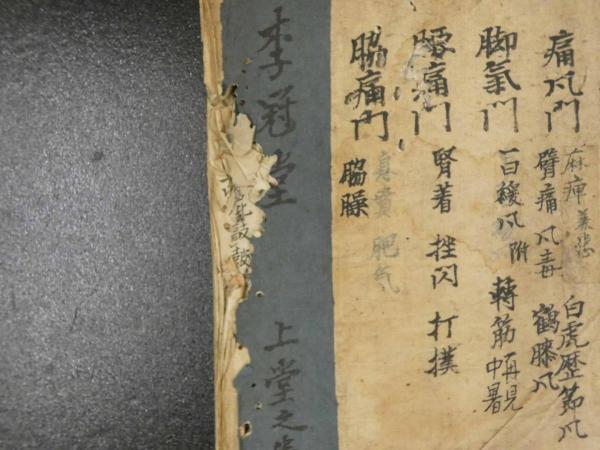 痛风門 麻痺 兼悲
臂痛 风毒 鶴膝风 白虎歷節风
脚氣門
一百緩风附 轉筋 再見中暑
腰痛門
腎着 挫闪 打撲
脇痛門
息賁 肥气
脇臊
李冠堂
上堂之